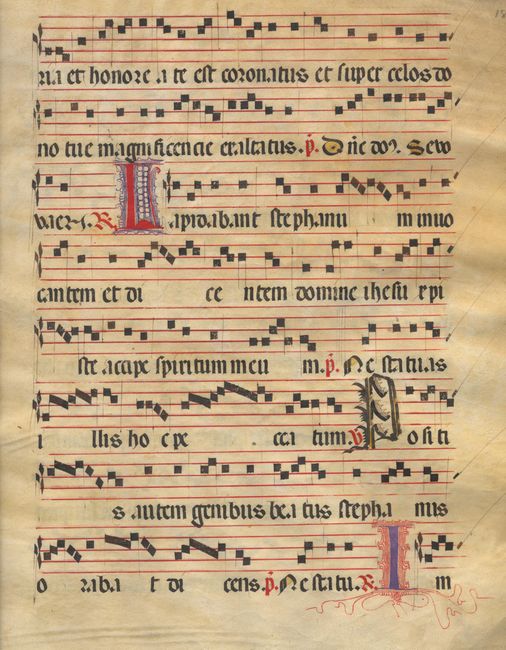 ria et honore a te est coronatus et super celos do
no tue magnificencie exaltatus. p. Dñe doꝫ. Sevo
vaers. R. Lapidabant stephanu m inuo
cantem et di ce ntem domine ihesu xpi
ste accipe spiritum meu m. p. Ne statuas
i llis ho c pe cca tum. V Positi
s autem genibus beatus stepha nus
o raba t di cens. p. Ne statu. R. I m